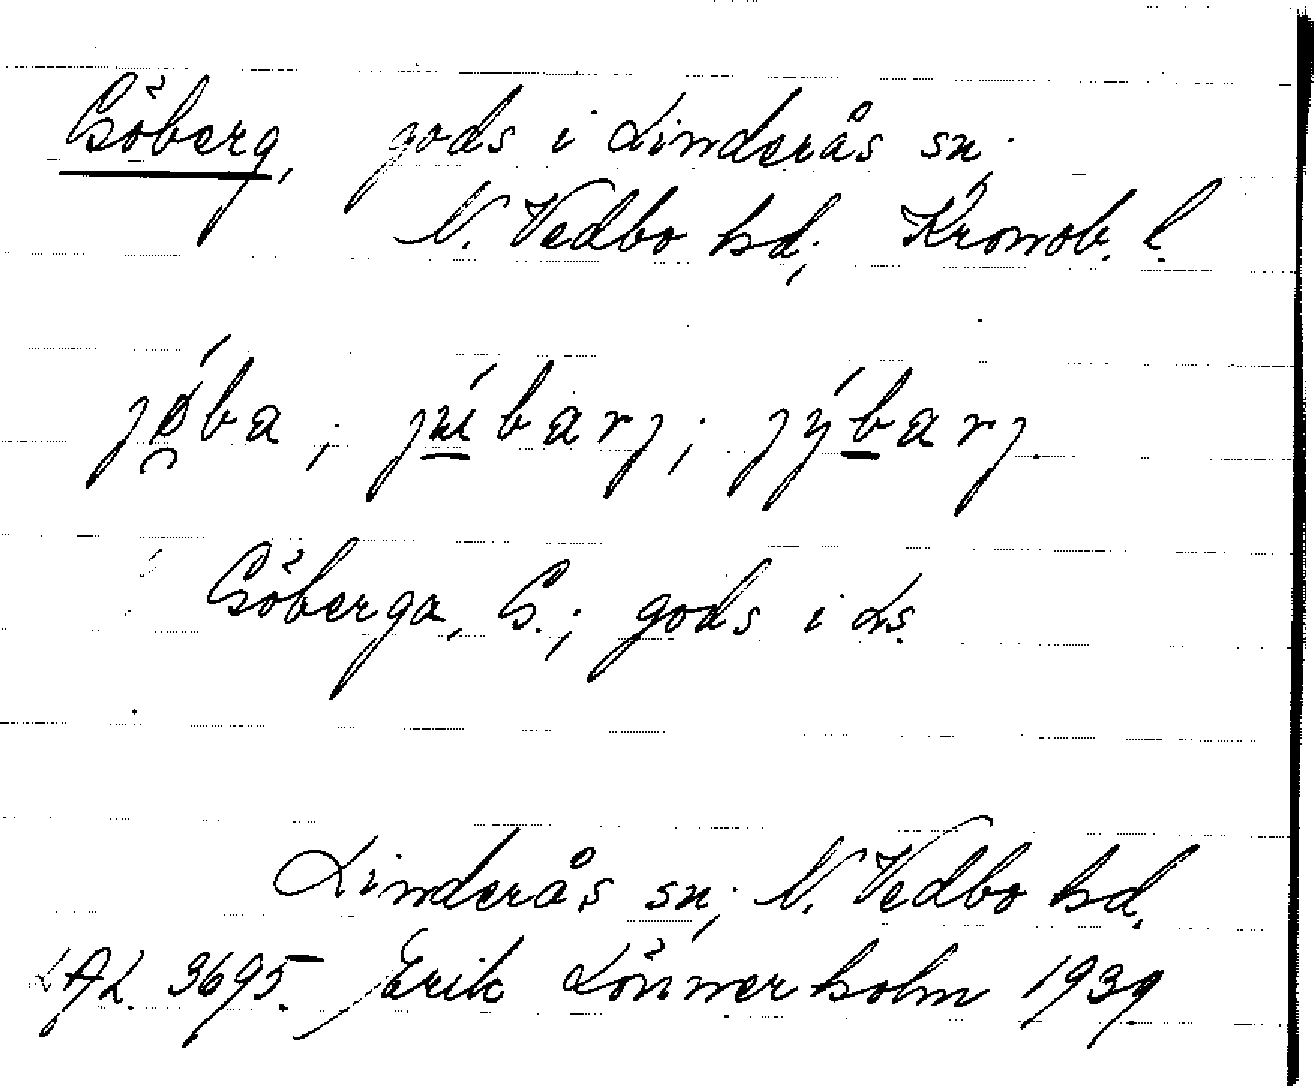 Göberg, gods i Linderås sn;
N. Vedbo hd; Kronob. l.
jǿba; jú̲barj; jýb̲arj.
Göberga, G.; gods i Ls.
Linderås sn; N. Vedbo hd.
LAL. 3695. Erik Lönnerholm 1939